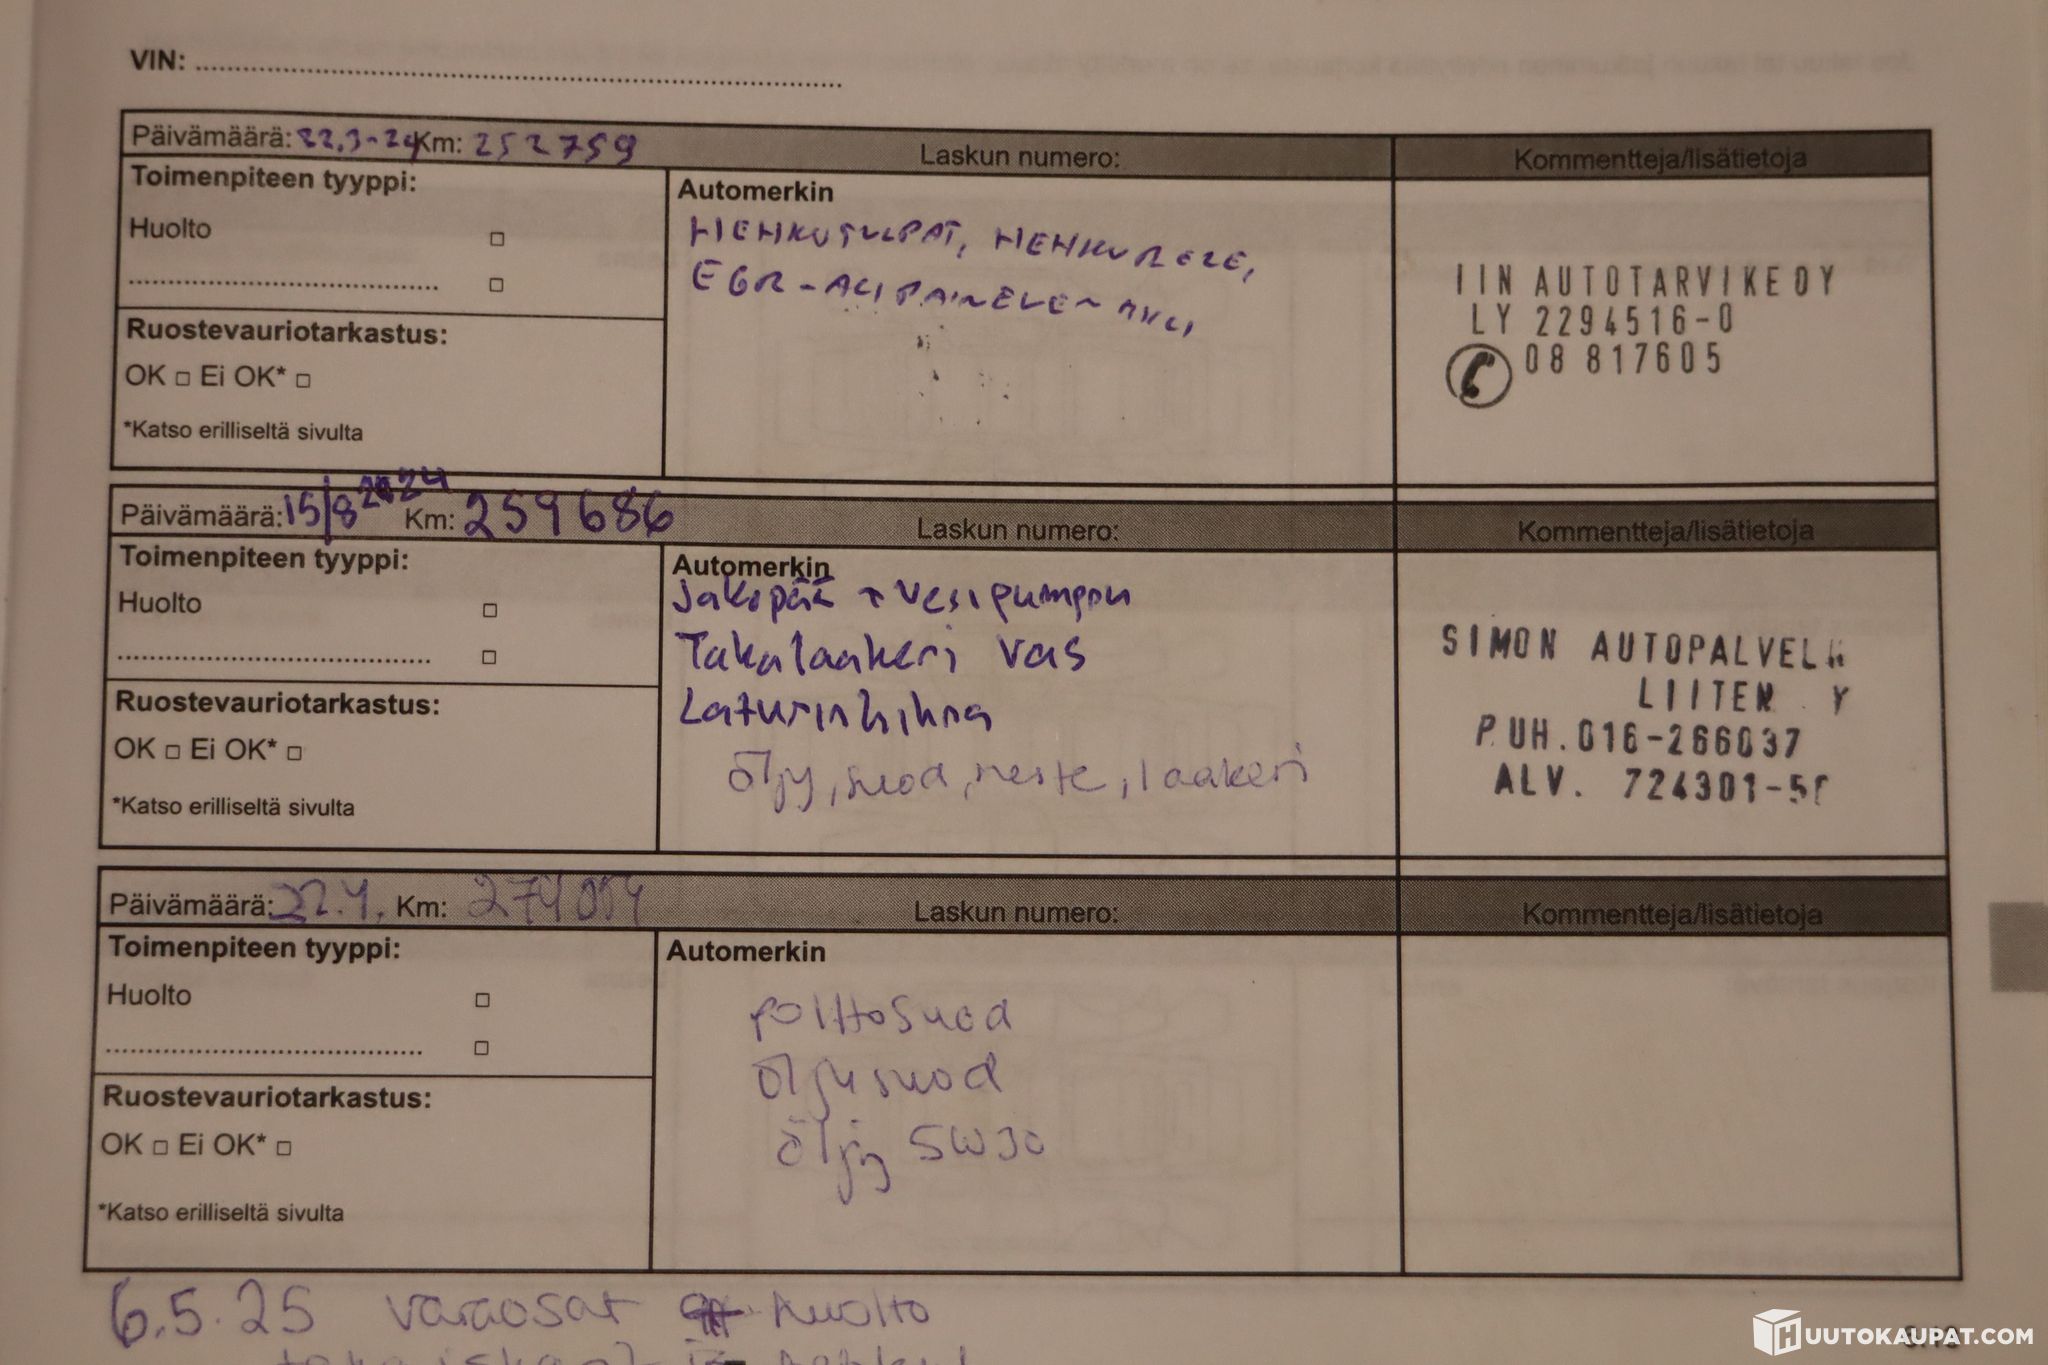 VIN: ..........
Päivämäärä: 22.3-24 Km: 252759 Laskun numero: Kommentteja/lisätietoja
Toimenpiteen tyyppi:
Automerkin
Huolto
HEHKUTULPAT, HEHKURELE,
EGR-ALIPAINELETKU,
Ruostevauriotarkastus:
OK □ Ei OK* □
*Katso erilliseltä sivulta
IIN AUTOTARVIKE OY
LY 2294516-0
08 817605
Päivämäärä: 15/8 2024 Km: 259686 Laskun numero: Kommentteja/lisätietoja
Toimenpiteen tyyppi:
Automerkin
Huolto
Jakopää + vesipumppu
Takalaakeri vas
Laturinhihna
öljy, suod, neste, laakeri
Ruostevauriotarkastus:
OK □ Ei OK* □
*Katso erilliseltä sivulta
SIMON AUTOPALVELU
PUH. 016-266037
ALV. 724301-5
Päivämäärä: 22.4. Km: Laskun numero: Kommentteja/lisätietoja
Toimenpiteen tyyppi:
Automerkin
Huolto
polttosuod
öljysuod
öljy 5W30
Ruostevauriotarkastus:
OK □ Ei OK* □
*Katso erilliseltä sivulta
6.5.25 varaosat huolto
HUUTOKAUPAT.COM